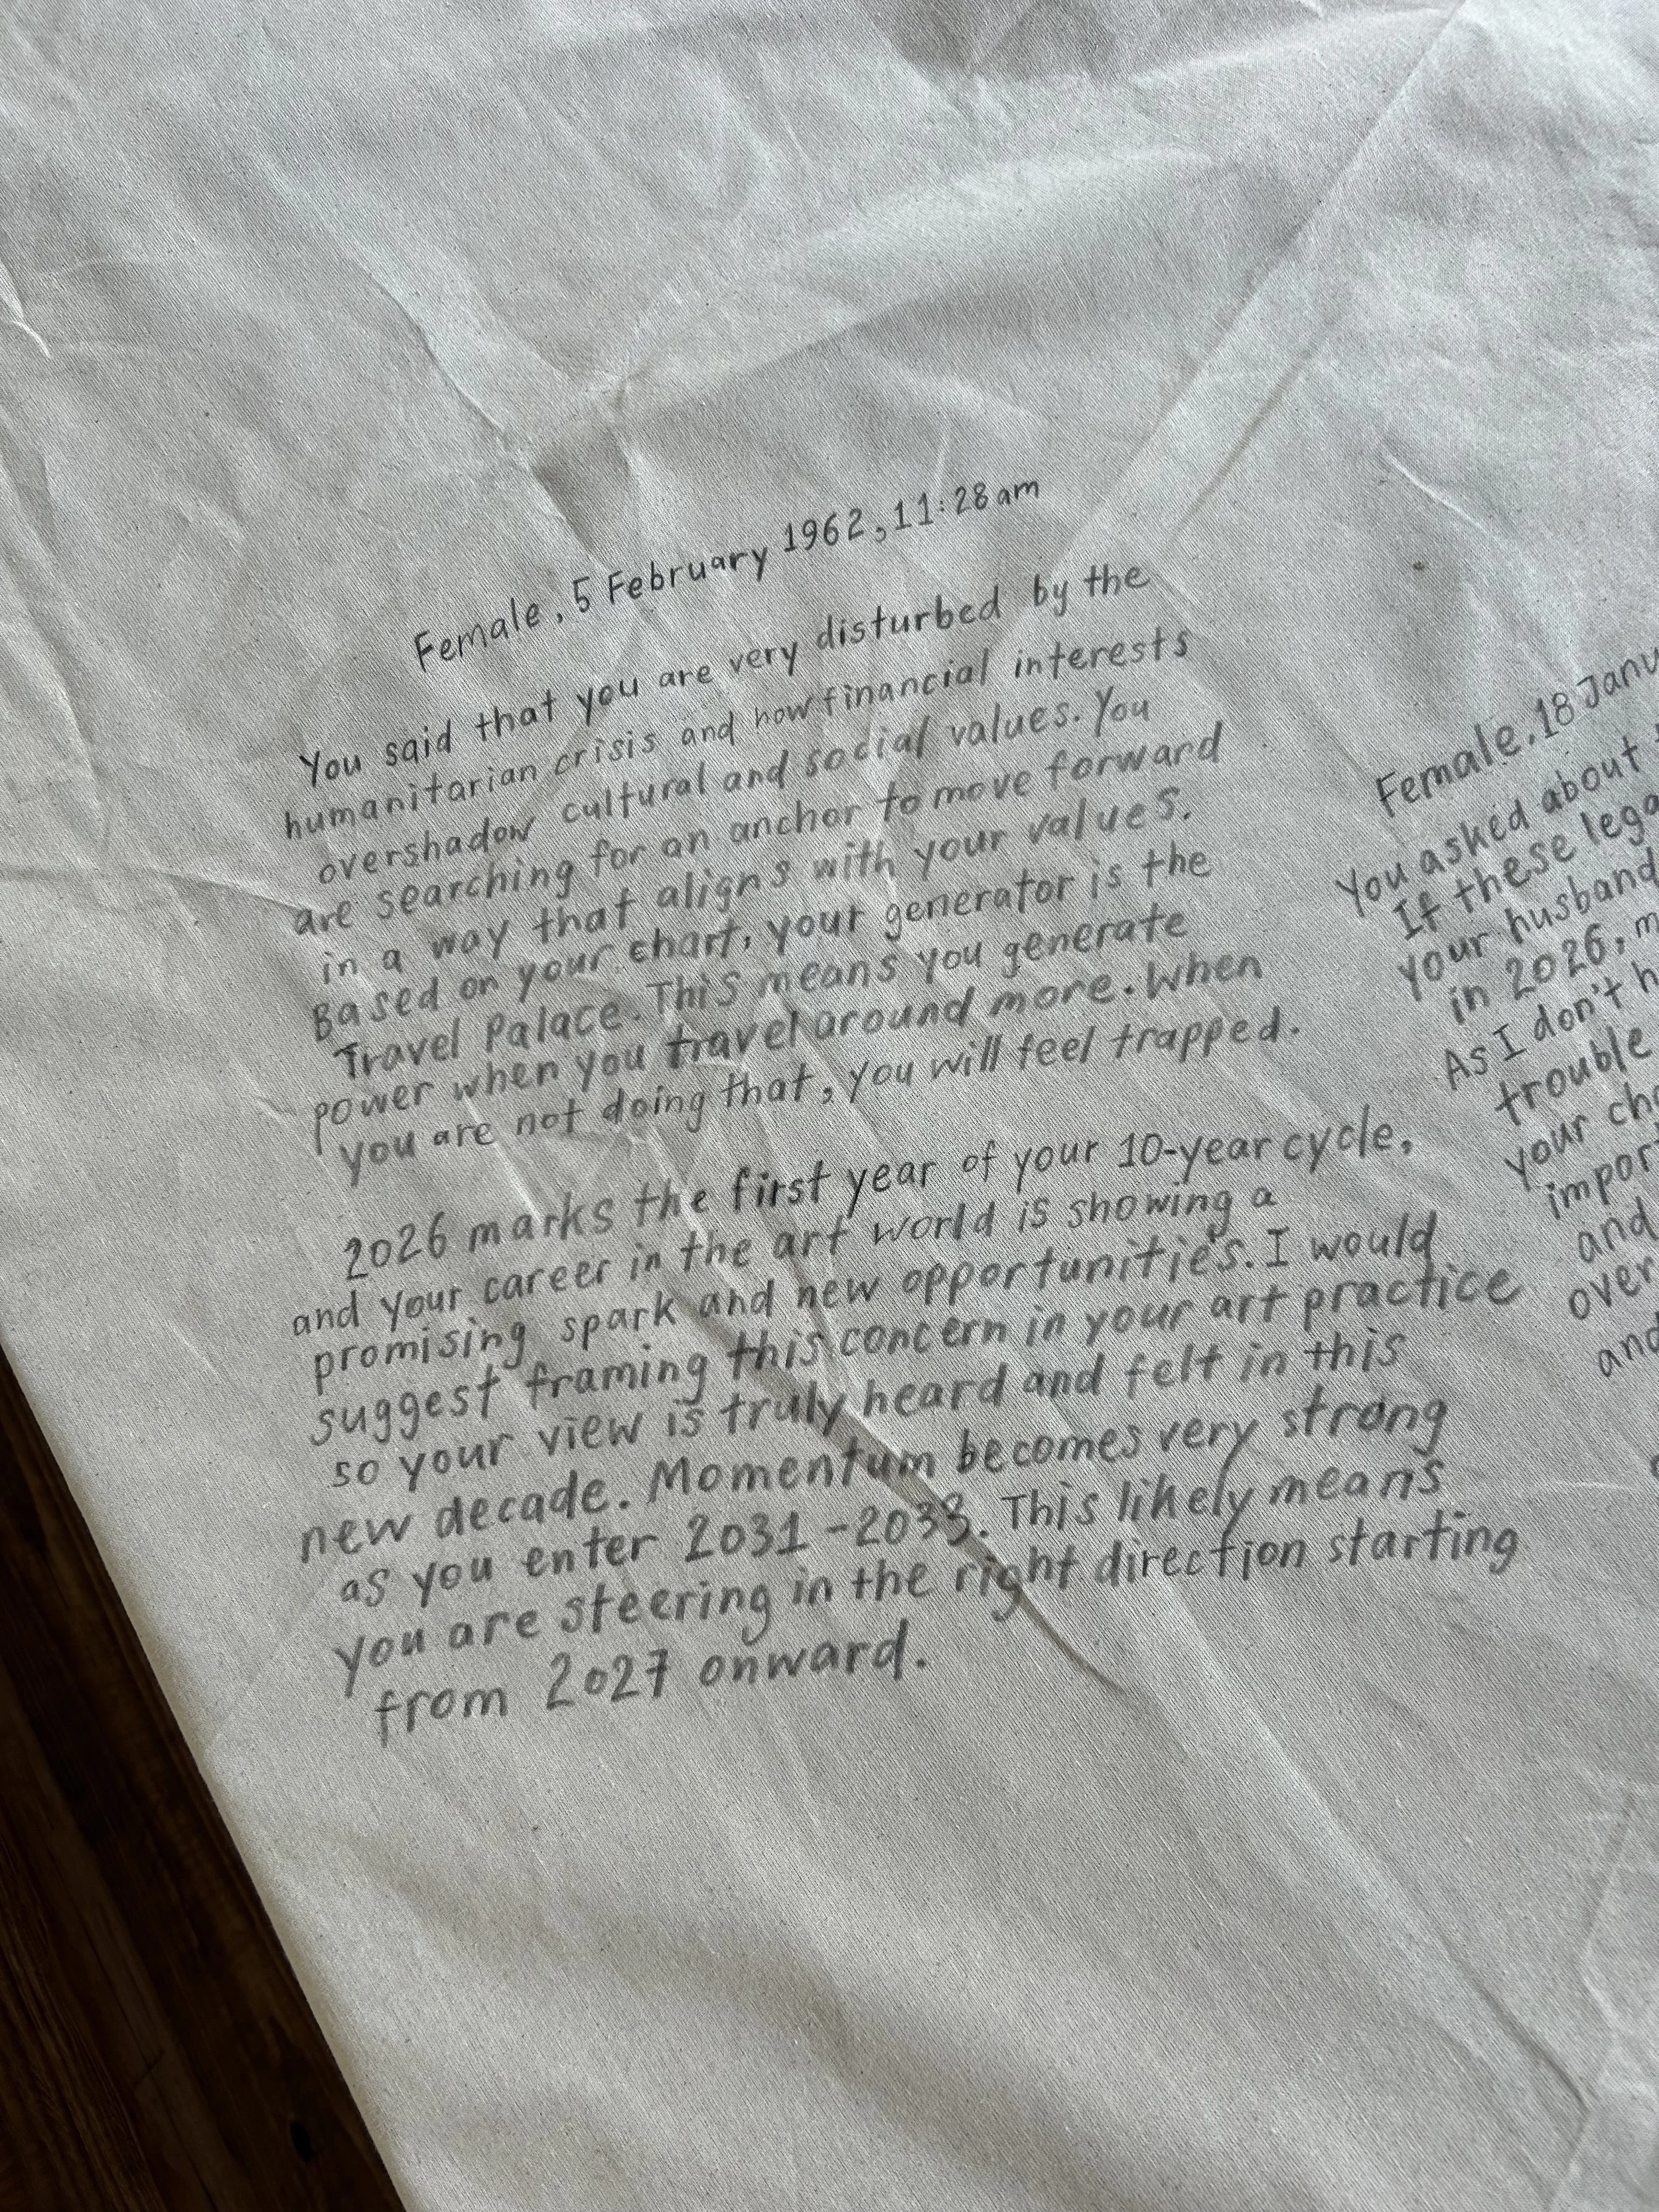 Female, 5 February 1962, 11:28 am
You said that you are very disturbed by the
humanitarian crisis and how financial interests
overshadow cultural and social values. You
are searching for an anchor to move forward
in a way that aligns with your values.
Based on your chart, your generator is the
Travel Palace. This means you generate
power when you travel around more. When
you are not doing that, you will feel trapped.
2026 marks the first year of your 10-year cycle,
and your career in the art world is showing a
promising spark and new opportunities. I would
suggest framing this concern in your art practice
so your view is truly heard and felt in this
new decade. Momentum becomes very strong
as you enter 2031-2033. This likely means
you are steering in the right direction starting
from 2027 onward.
Female, 18
You asked about
If these
your husband
in 2026,
As I don't
trouble
your
and
over
and